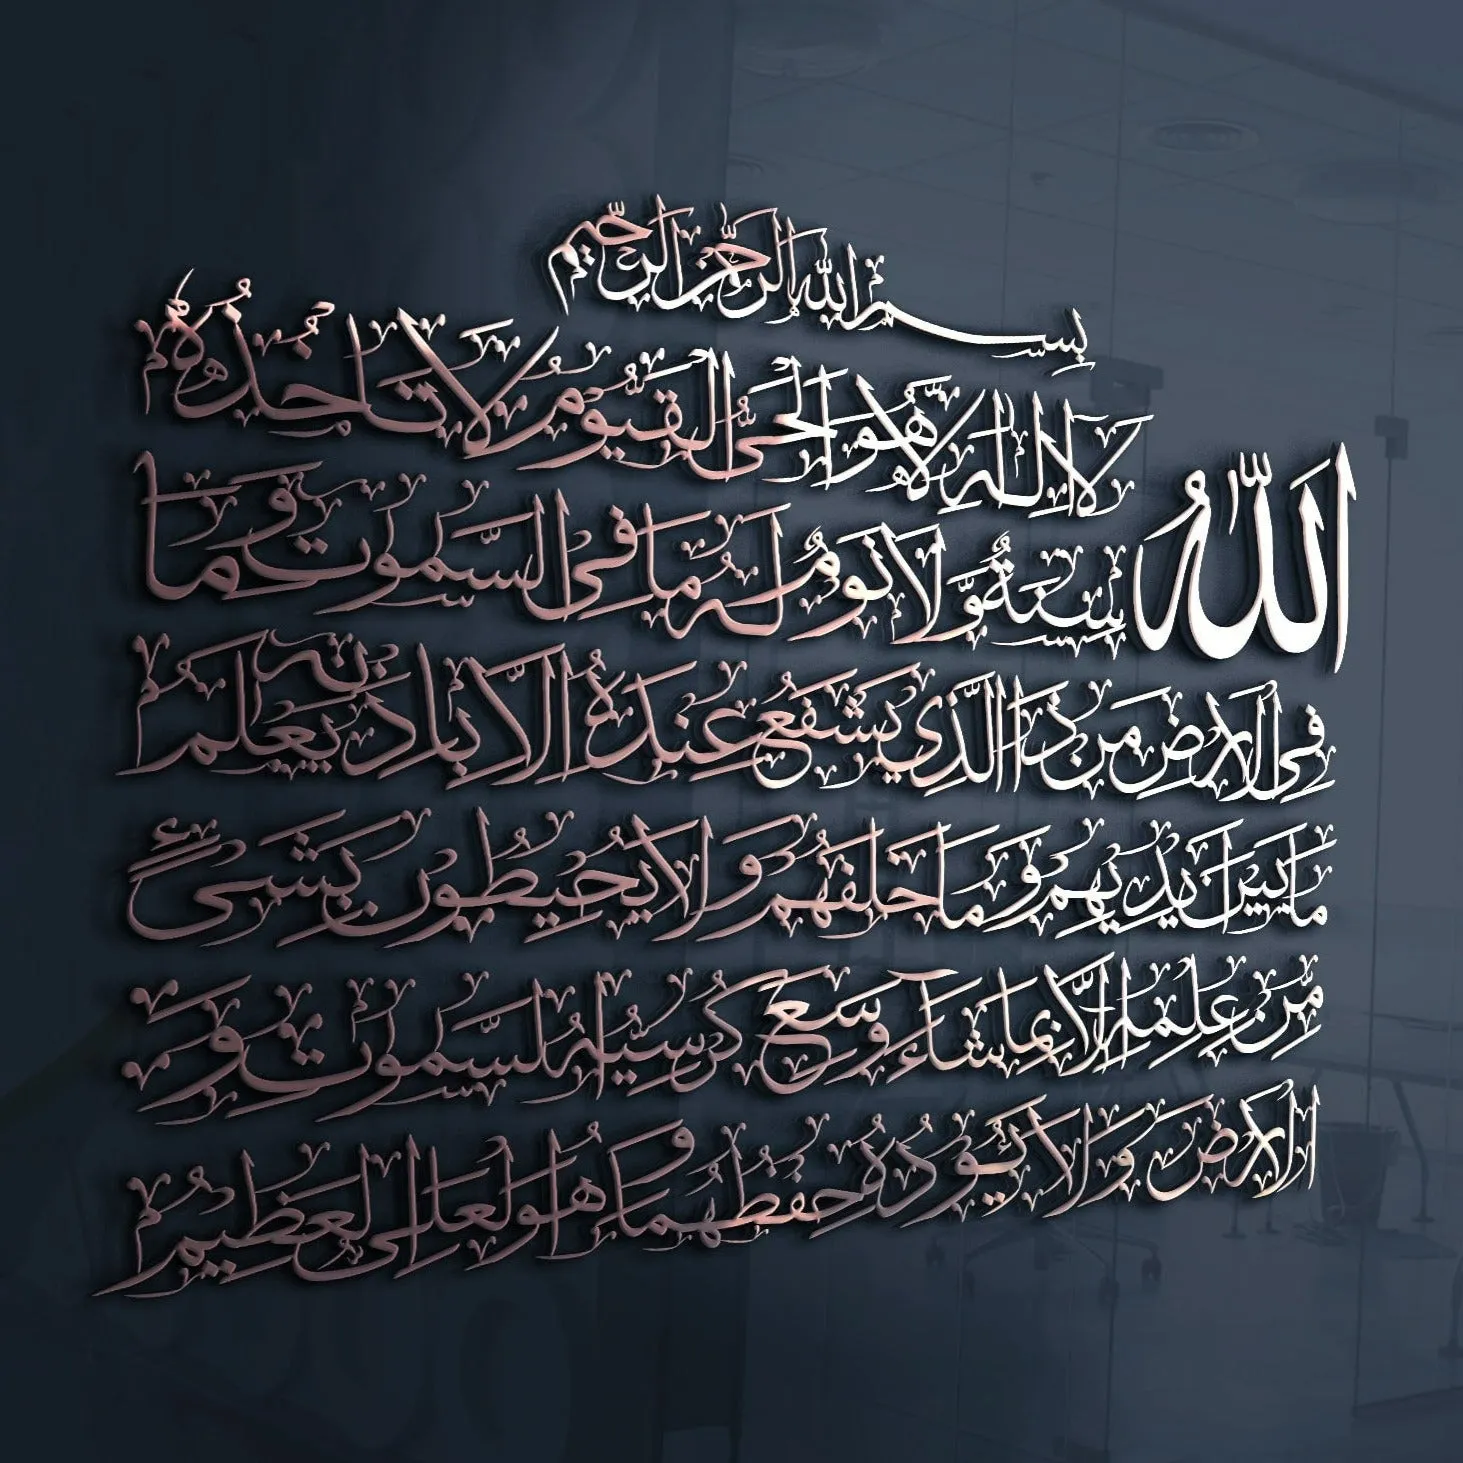 بسم الله الرحمن الرحيم
الله لا إله إلا هو الحي القيوم لا تأخذه
سنة ولا نوم له ما في السموات وما
في الارض من ذا الذي يشفع عنده الا باذنه يعلم
ما بين ايديهم وما خلفهم ولا يحيطون بشيء
من علمه الا بما شاء وسع كرسيه السموات و
الارض ولا يؤده حفظهما وهو العلي العظيم